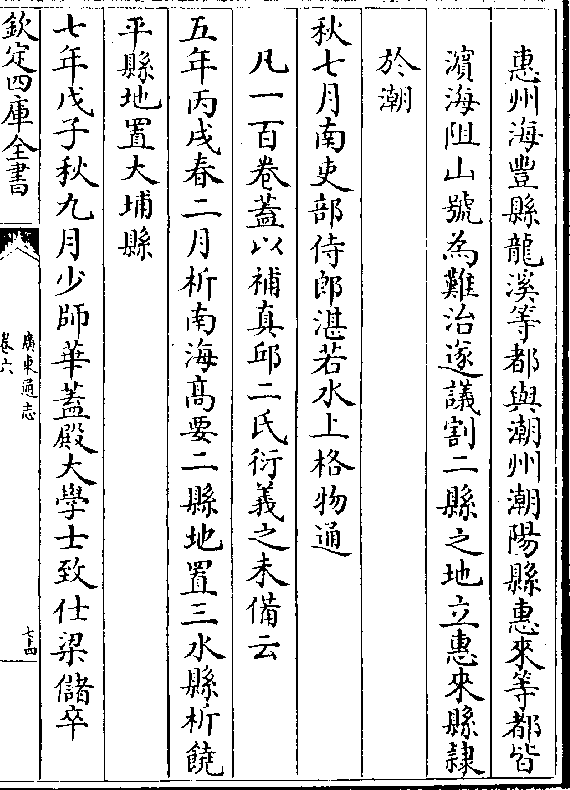 惠州海豐縣龍溪等都與潮州潮陽縣惠來等都皆
濵海阻山號為難治遂議割二縣之地立惠來縣隷
於潮
秋七月南吏部侍郎湛若水上格物通
凡一百卷葢以補真邱二氏衍義之未備云
五年丙戌春二月析南海髙要二縣地置三水縣析饒
平縣地置大埔縣
七年戊子秋九月少師華葢殿大學士致仕梁儲卒
欽定四庫全書
廣東通志
卷六
七十四